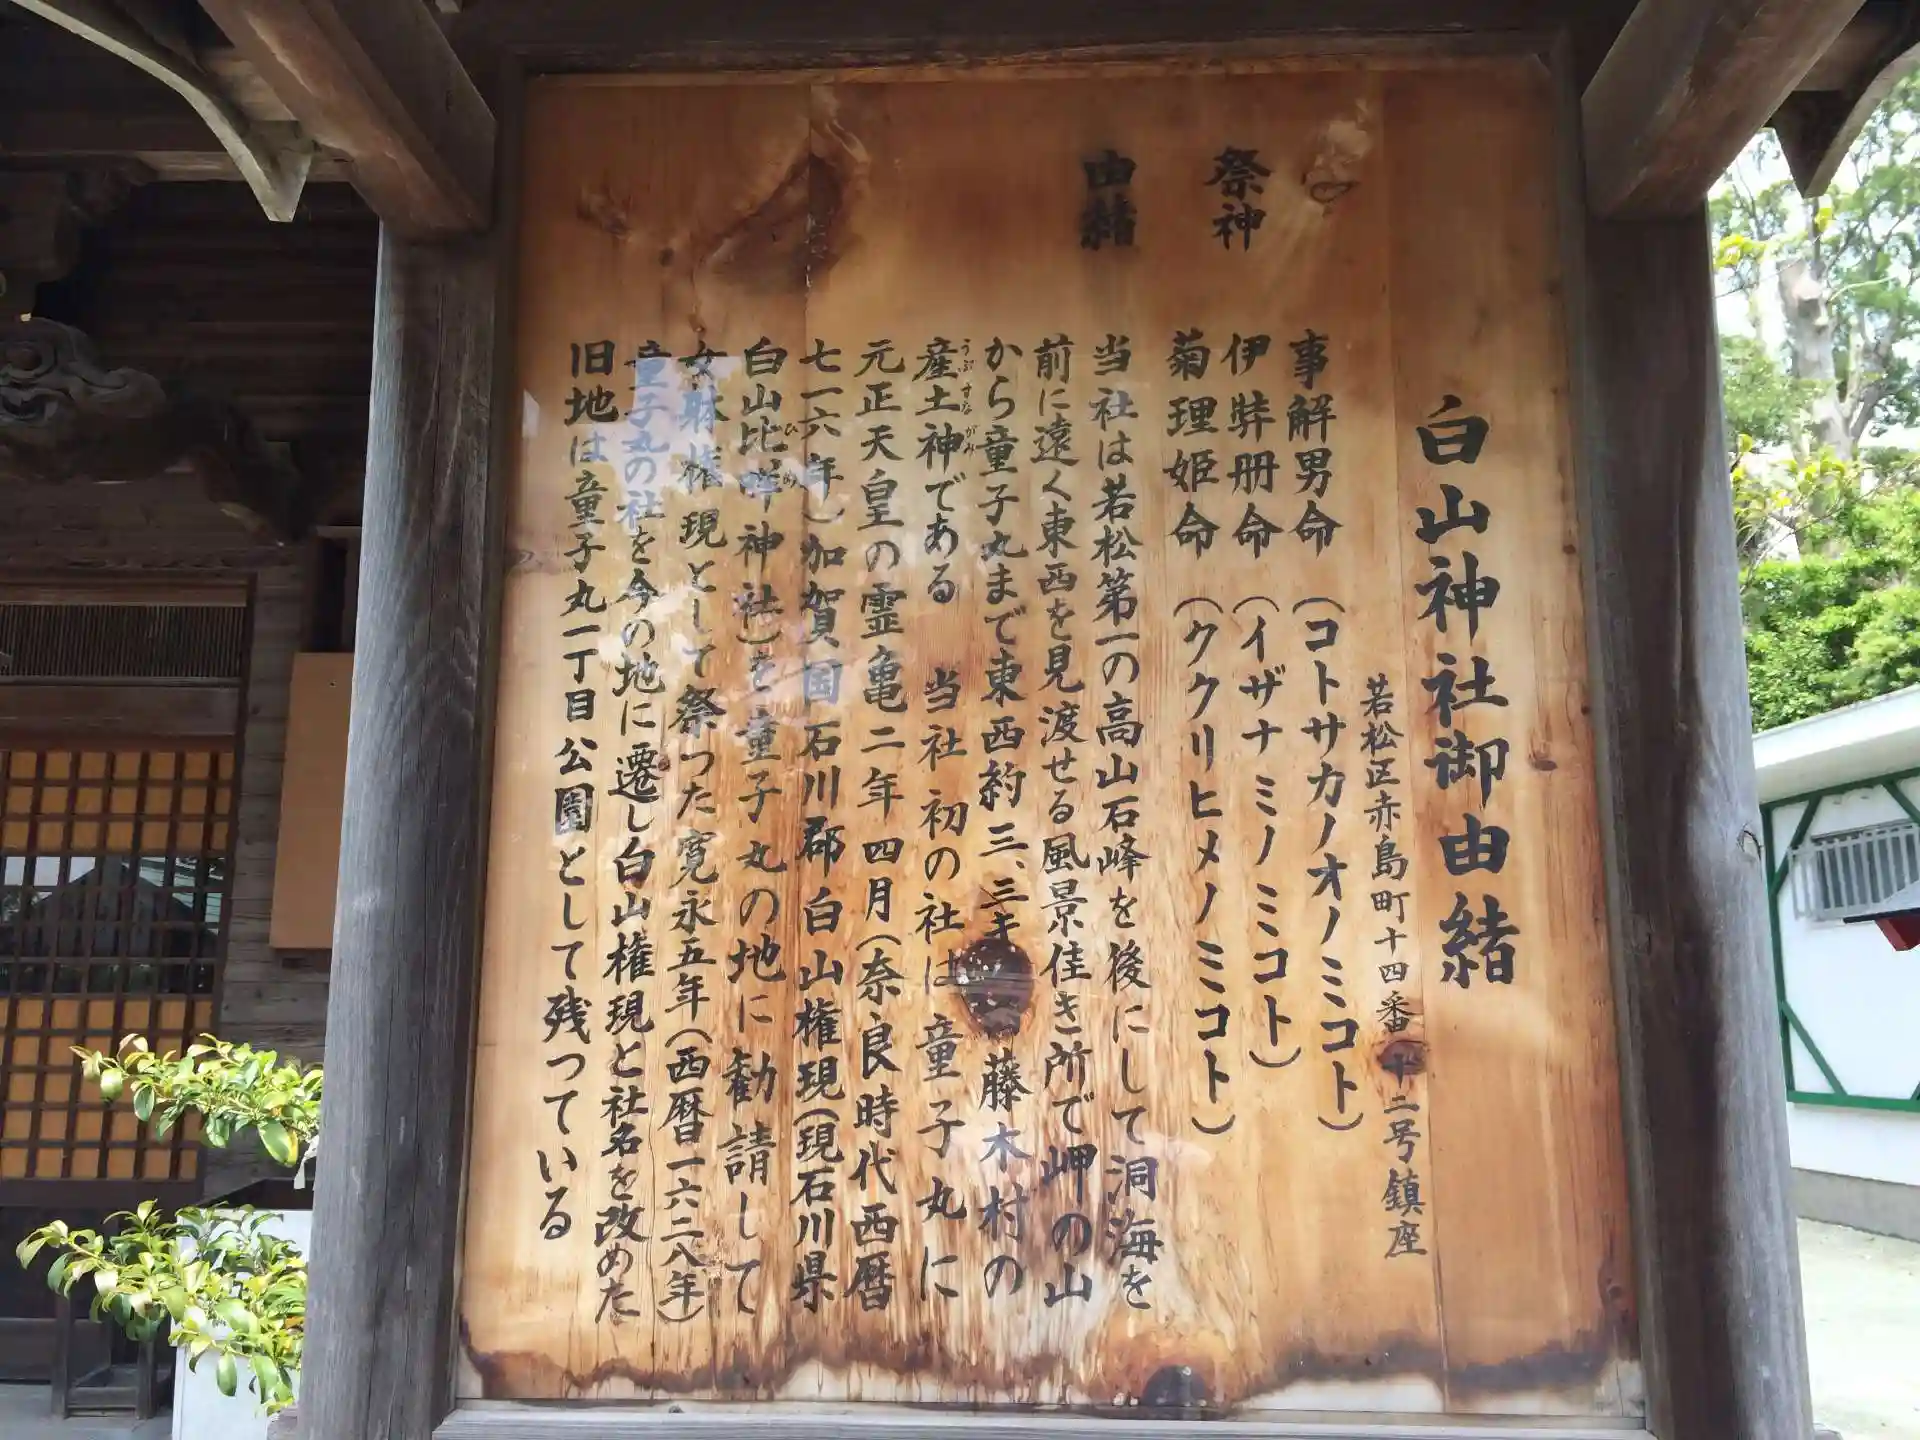 白山神社御由緒
若松区赤島町十四番十二号鎮座
祭神
事解男命(コトサカノオノミコト)
伊弉冊命(イザナミノミコト)
菊理姫命(ククリヒメノミコト)
由緒
当社は若松第一の高山石峰を後にして洞海を
前に遠く東西を見渡せる風景佳き所で岬の山
から童子丸まで東西約三、三キ 藤木村の
産土神である 当社初の社は童子丸に
うぶすながみ
元正天皇の霊亀二年四月(奈良時代西暦
七一六年)加賀国石川郡白山権現(現石川県
白山比咩神社)を童子丸の地に勧請して
ひめ
女躰権現として祭つた寛永五年(西暦一六二八年)
童子丸の社を今の地に遷し白山権現と社名を改めた
旧地は童子丸一丁目公園として残つている